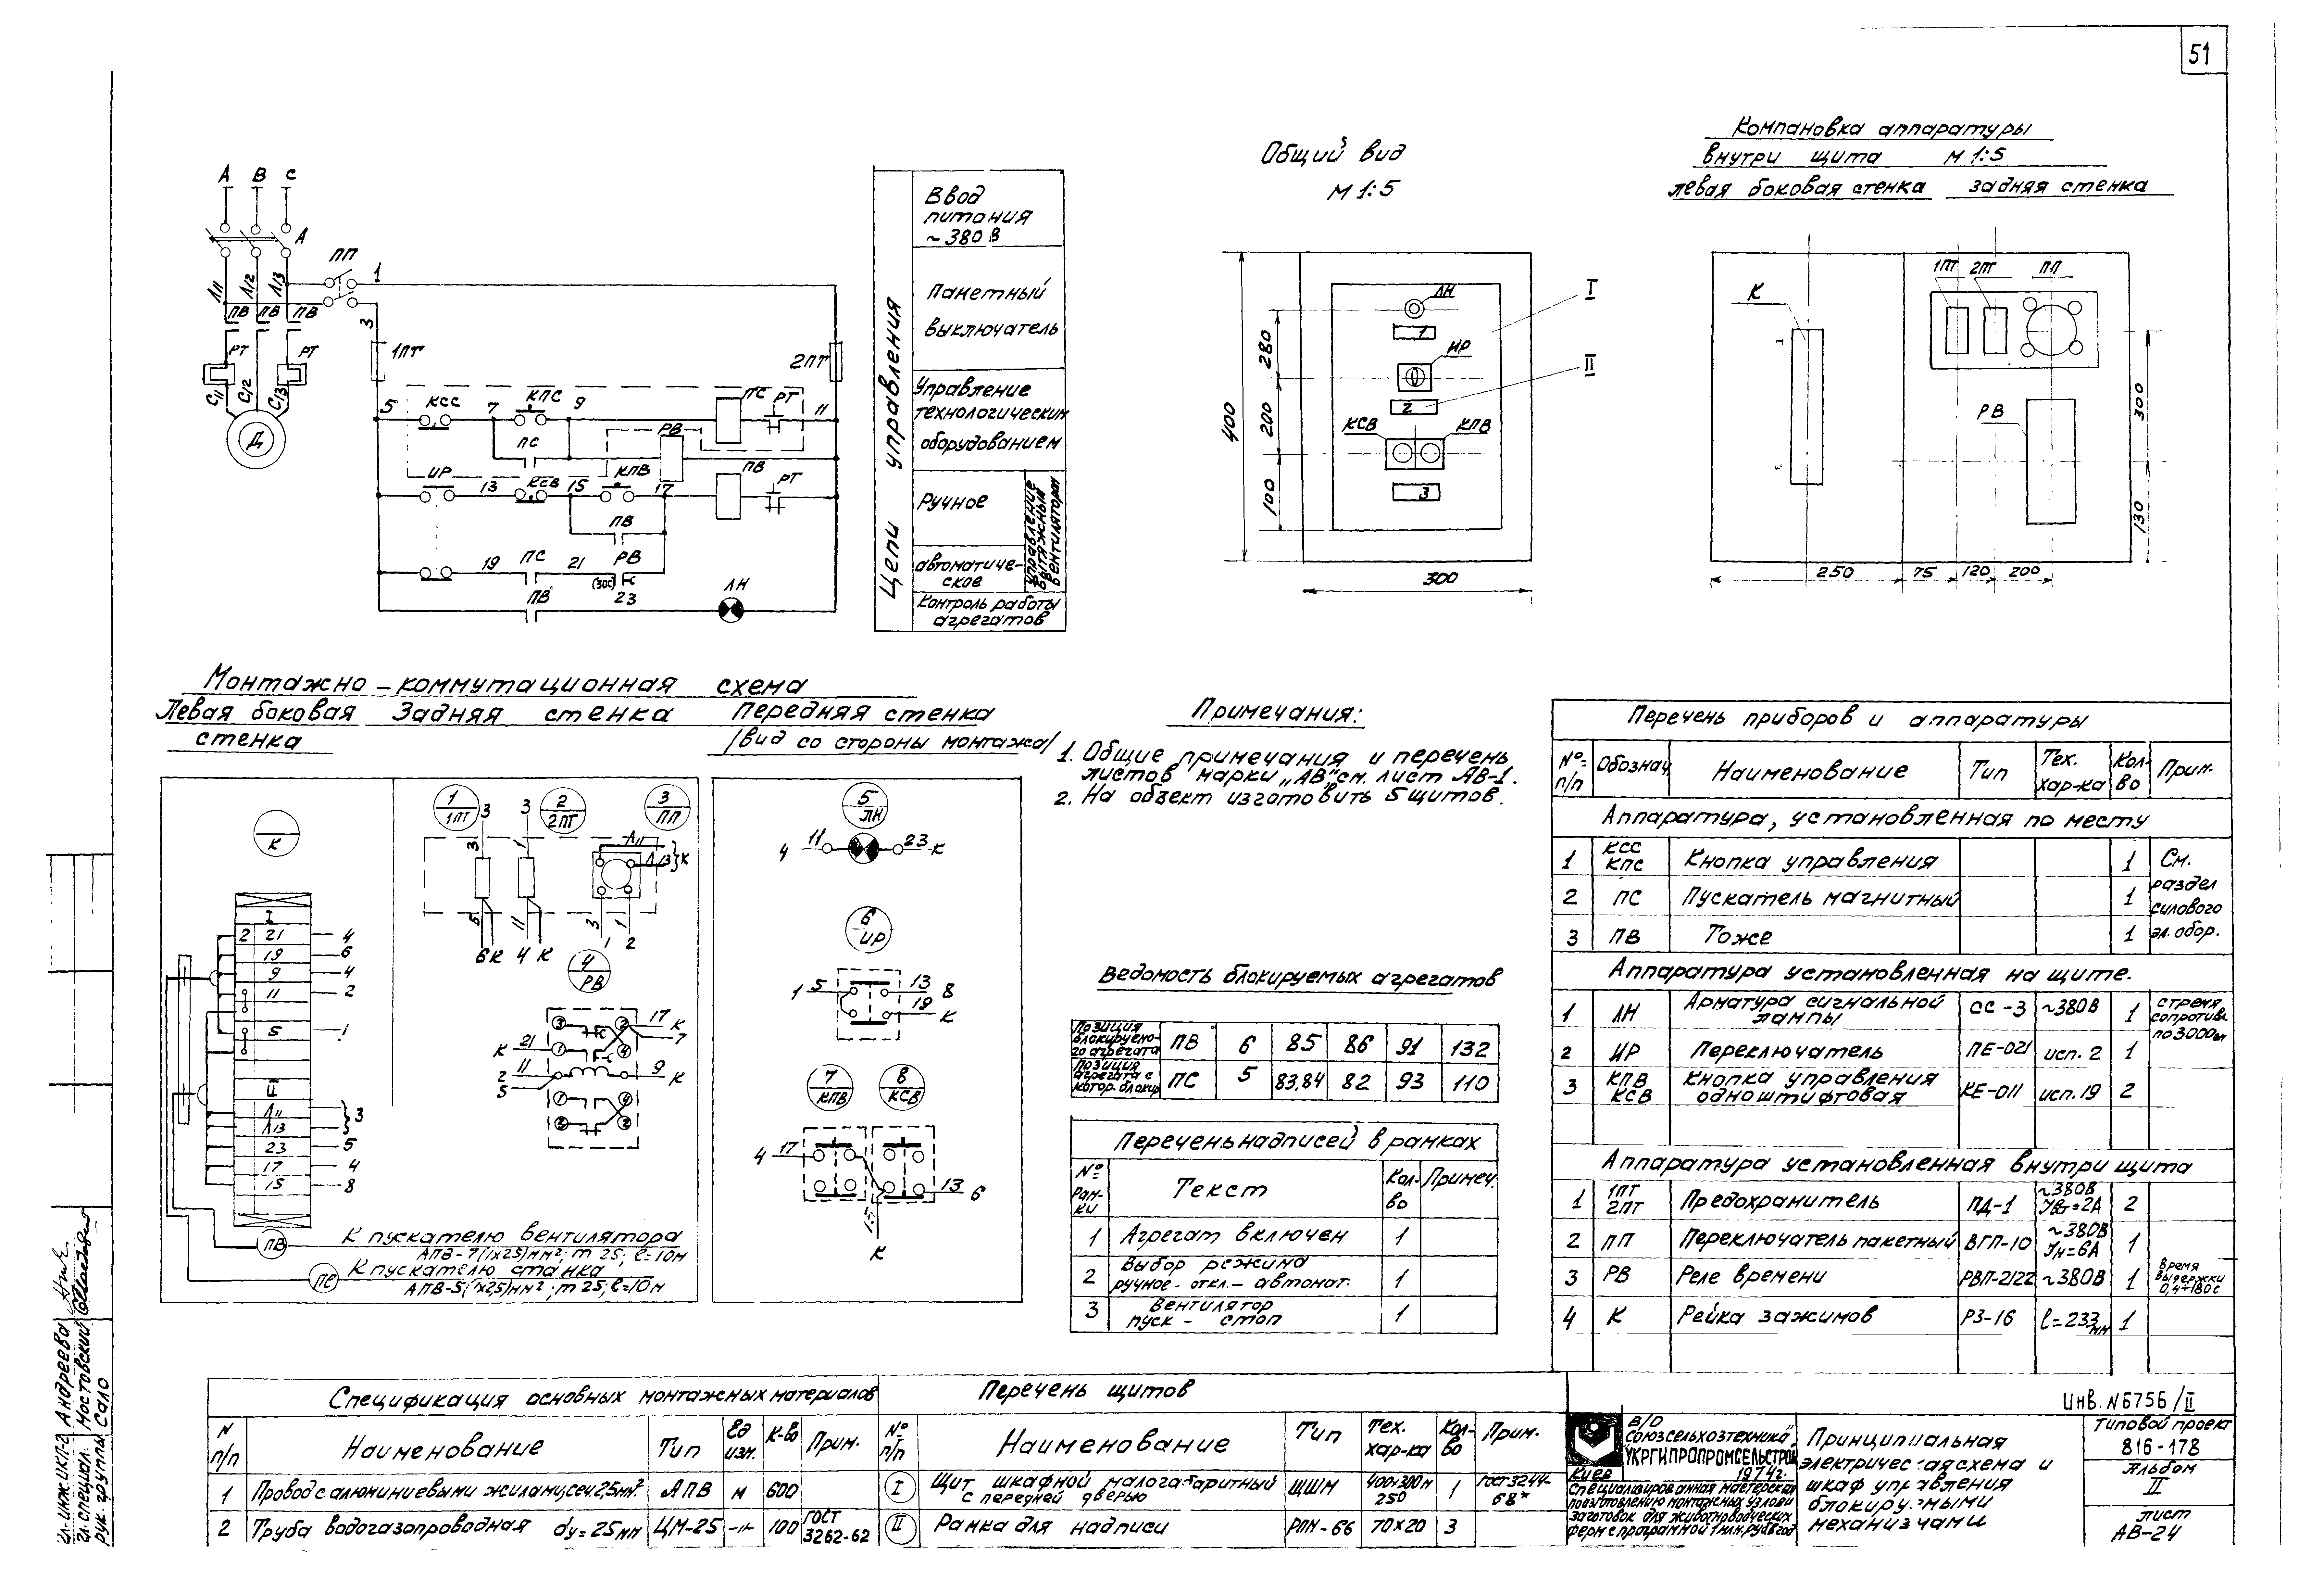 51
А В С
А
ПП
1
Л11 Л12 Л13
ПВ ПВ ПВ
3
РТ РТ
1ПТ
2ПТ
С11 С12 С13
Д
5 КСС 7 КПС 9 ПС РТ 11
ПС РВ
ИР 13 КСВ 15 КПВ 17 ПВ РТ
ПВ
19 ПС 21 РВ
(30с)
ПВ 23 ЛН
Цепи управления
Ввод
питания
~380В
Пакетный
выключатель
Управление
технологическим
оборудованием
Ручное
автоматиче-
ское
Управление
вытяжным
вентилятором
Контроль работы
агрегатов
Общий вид
М 1:5
ЛН
1
ИР
2
КСВ КПВ
3
I
II
400
280
200
100
300
Компановка аппаратуры
внутри щита М 1:5
левая боковая стенка задняя стенка
К
1ПТ 2ПТ ПП
РВ
300
130
250 75 120 200
Монтажно-коммутационная схема
Левая боковая Задняя стенка Передняя стенка
стенка
/вид со стороны монтажа/
К
I
2 21 4
19 6
9 4
11 2
5 1
II
Л11
Л13 3
23 5
17 4
15 8
ПВ
К пускателю вентилятора
АПВ-7(1х2,5)мм²; т 25; ℓ=10м
ПС
К пускателю станка
АПВ-5(1х2,5)мм²; т 25; ℓ=10м
1
1ПТ
2
2ПТ
3
ПП
3 3
3 1
Л11
Л13 К
5 11 3 1
6 К 4 К 1 2
4
РВ
17 К
7
К 21
2 11
5
9 К
5
ЛН
4 11 23 К
6
ИР
1 5 13 8
19 К
7
КПВ
8
КСВ
4 17
13 6
15
К
Примечания:
1. Общие примечания и перечень
листов марки „АВ" см. лист АВ-1.
2. На объект изготовить 5 щитов.
Ведомость блокируемых агрегатов
Позиция
блокируемо-
го агрегата ПВ 6 85 86 91 132
Позиция
агрегата с
котор. блокир ПС 5 83,84 82 93 110
Перечень надписей в рамках
№
рам-
ки Текст Кол-
во Примеч.
1 Агрегат включен 1
2 Выбор режима
ручное - откл. - автомат. 1
3 Вентилятор
пуск - стоп 1
Перечень приборов и аппаратуры
№
п/п Обознач. Наименование Тип Тех.
хар-ка Кол-
во Прим.
Аппаратура, установленная по месту
1 КСС
КПС Кнопка управления 1 См.
2 ПС Пускатель магнитный 1 раздел
силового
3 ПВ Тоже 1 эл. обор.
Аппаратура установленная на щите.
1 ЛН Арматура сигнальной
лампы СС-3 ~380В 1 стремя
сопротивл.
по 3000ом
2 ИР Переключатель ПЕ-021 исп. 2 1
3 КПВ
КСВ Кнопка управления
одноштифтовая КЕ-011 исп. 19 2
Аппаратура установленная внутри щита
1 1ПТ
2ПТ Предохранитель ПД-1 ~380В
Jвт=2А 2
2 ПП Переключатель пакетный ВГП-10 ~380В
Jн=6А 1
3 РВ Реле времени РВП-2122 ~380В 1 Время
выдержки
0,4÷180с
4 К Рейка зажимов РЗ-16 ℓ=233мм 1
Спецификация основных монтажных материалов
N
п/п Наименование Тип Ед
изм. К-во Прим.
1 Провод с алюминиевыми жилами, сеч. 2,5мм² АПВ м 600
2 Труба водогазопроводная dу=25мм ЦМ-25 -"- 100 ГОСТ
3262-62
Перечень щитов
№
п/п Наименование Тип Тех.
хар-ка Кол-
во Прим.
I Щит шкафной малогабаритный
с передней дверью ЩШМ 400х300х
250 1 ГОСТ 3244-
68*
II Рамка для надписи РПМ-66 70х20 3
В/О
„Союзсельхозтехника"
УКРГИПРОПРОМСЕЛЬСТРОЙ
Киев 1974г.
Специализированная мастерская
по изготовлению монтажных узлов и
заготовок для животноводческих
ферм с программой 1 млн. руб в год
Принципиальная
электричес-ая схема и
шкаф управления
блокируемыми
механизмами
Инв. N6756/II
Типовой проект
816-178
Альбом
II
лист
АВ-24
Гл. инж. ИКП-2 Андреева
Гл. специал. Мостовский
рук. группы Сало